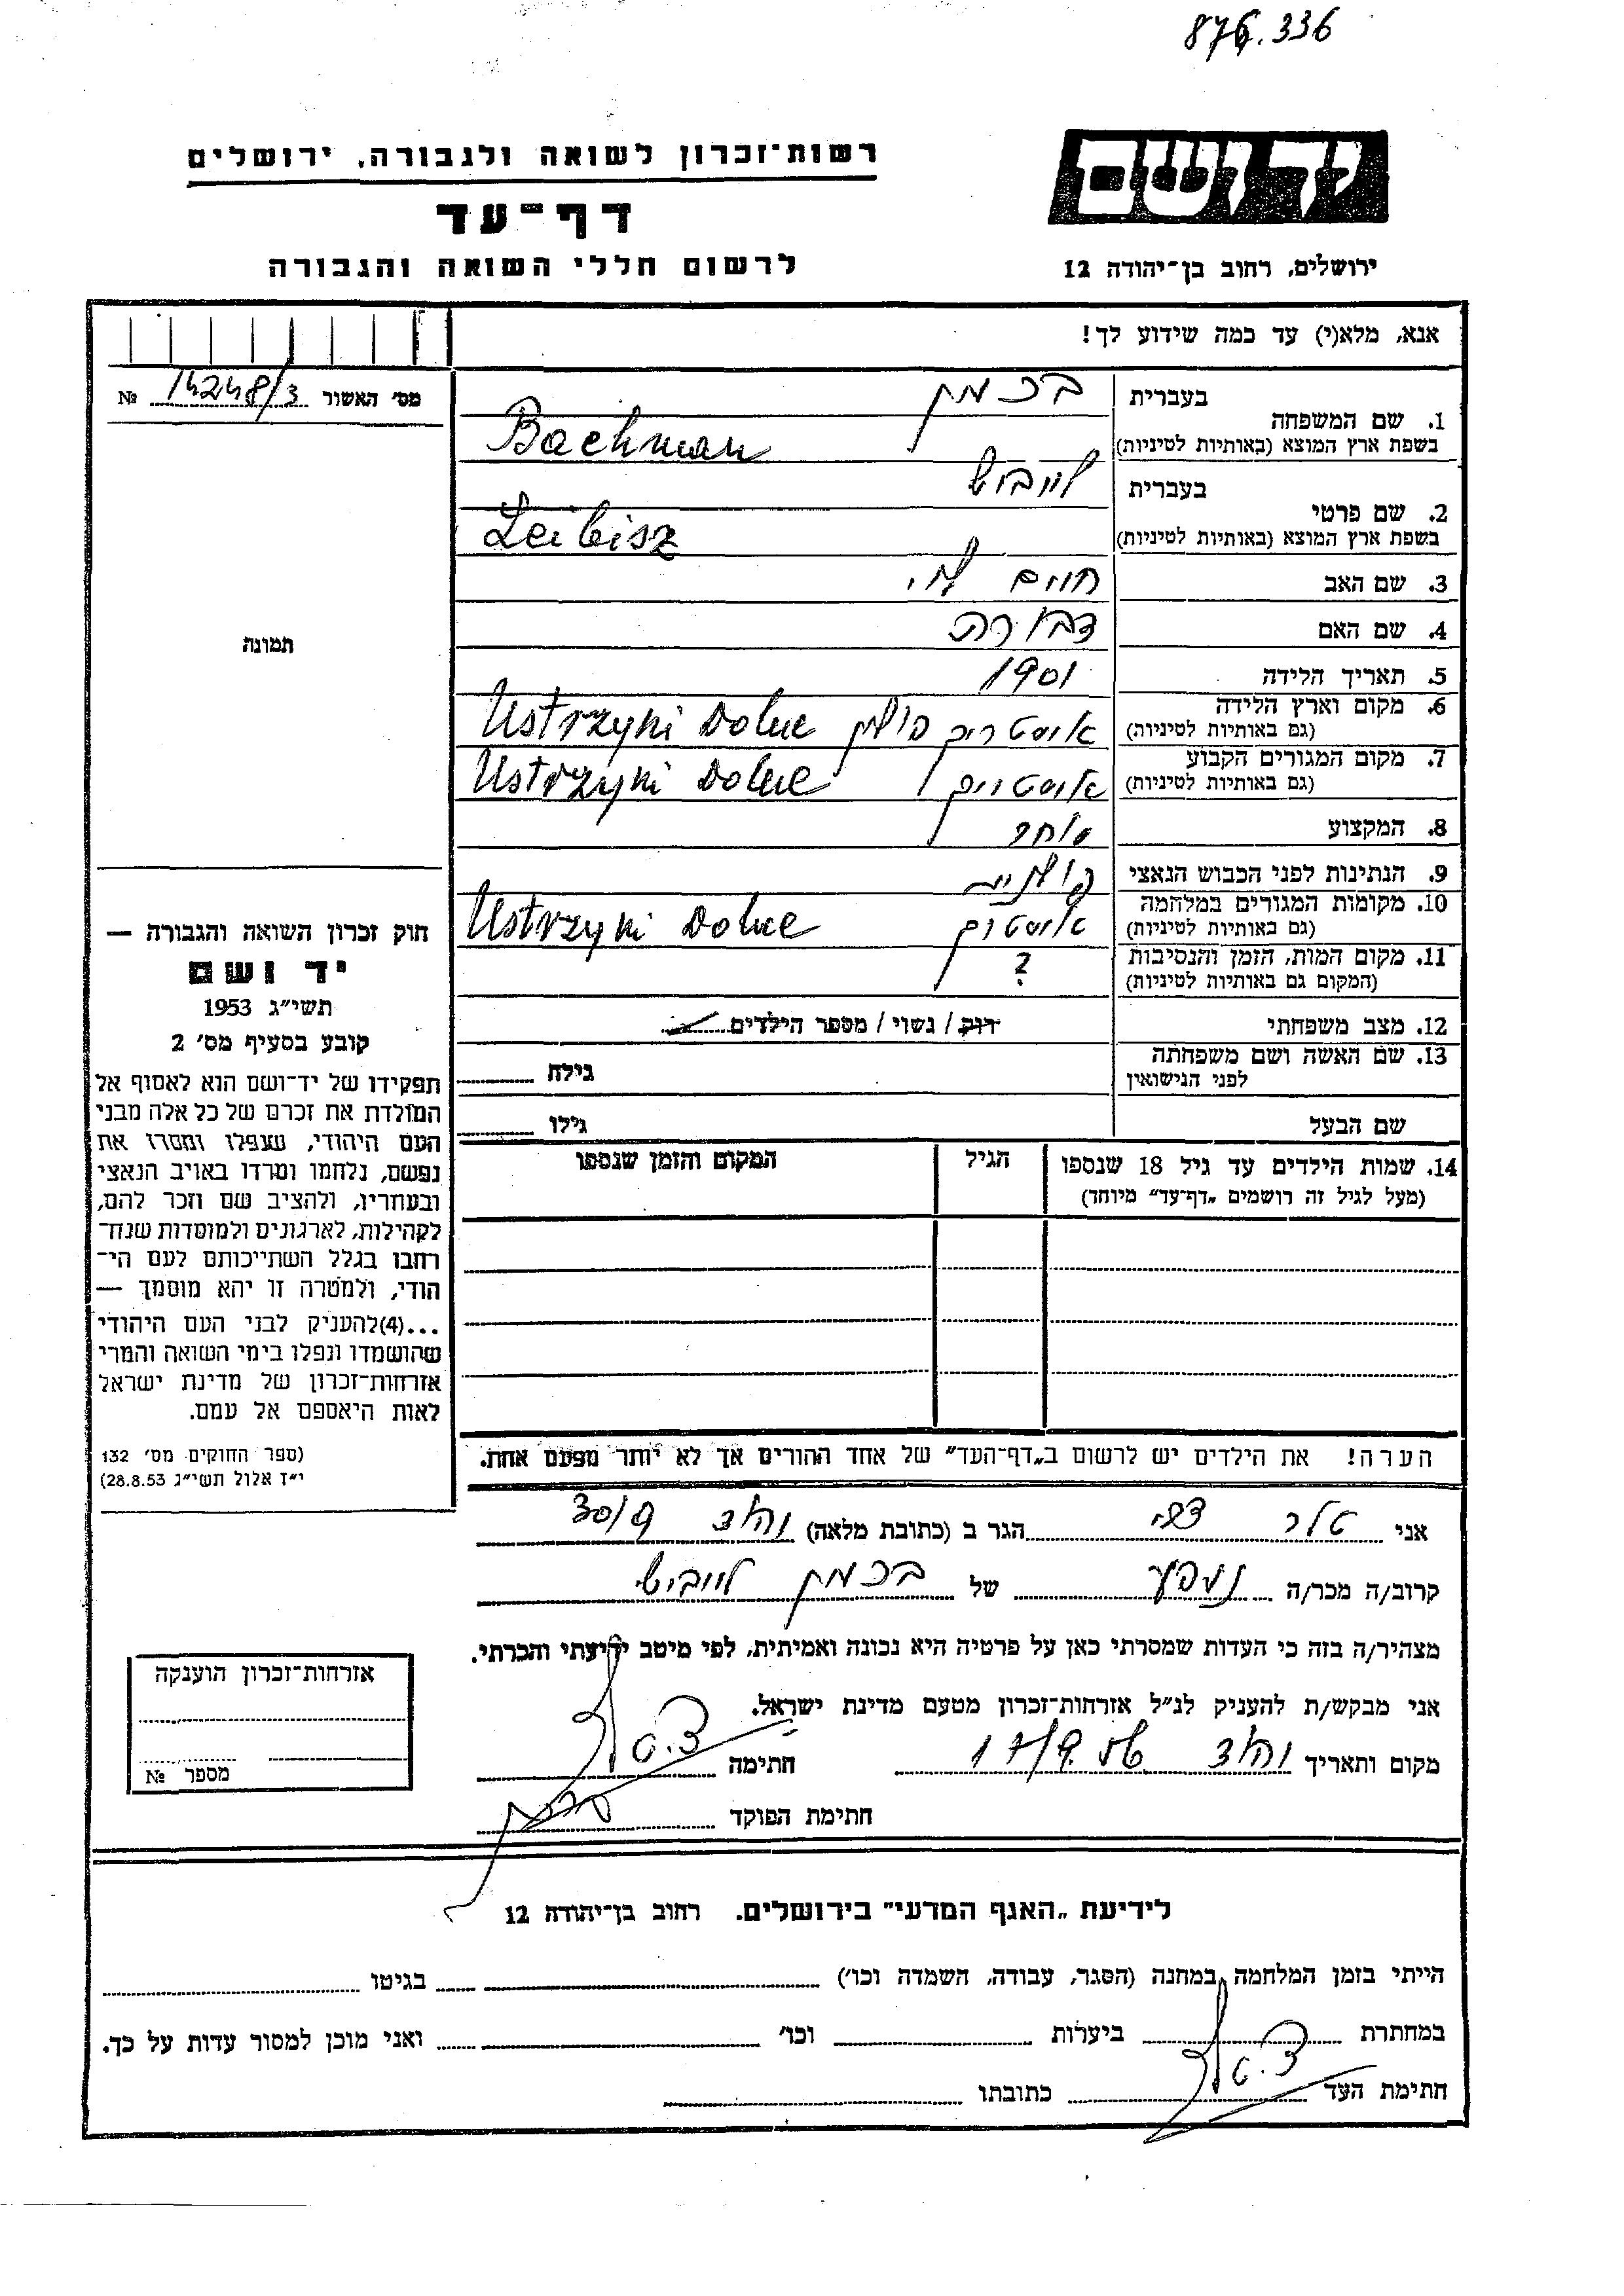 876.336
יד ושם
רשות-זכרון לשואה ולגבורה, ירושלים
דף-עד
לרשום חללי השואה והגבורה
ירושלים, רחוב בן-יהודה 12
אנא, מלא(י) עד כמה שידוע לך!
מס' האשור 14248/3 №
תמונה
1. שם המשפחה
בעברית בכמן
בשפת ארץ המוצא (באותיות לטיניות) Bachman
2. שם פרטי
בעברית לייביש
בשפת ארץ המוצא (באותיות לטיניות) Leibisz
3. שם האב חיים
4. שם האם דבורה
5. תאריך הלידה 1901
6. מקום וארץ הלידה
(גם באותיות לטיניות) אוסטריק פולין Ustrzyki Dolne
7. מקום המגורים הקבוע
(גם באותיות לטיניות) אוסטריק Ustrzyki Dolne
8. המקצוע סוחר
9. הנתינות לפני הכבוש הנאצי פולנית
10. מקומות המגורים במלחמה
(גם באותיות לטיניות) אוסטריק Ustrzyki Dolne
11. מקום המות, הזמן והנסיבות
(המקום גם באותיות לטיניות) ?
12. מצב משפחתי רוק / נשוי / מספר הילדים
13. שם האשה ושם משפחתה
לפני הנישואין
גילה
שם הבעל
גילו
14. שמות הילדים עד גיל 18 שנספו
(מעל לגיל זה רושמים "דף-עד" מיוחד)
הגיל
המקום והזמן שנספו
הערה! את הילדים יש לרשום ב"דף-העד" של אחד ההורים אך לא יותר מפעם אחת.
חוק זכרון השואה והגבורה —
יד ושם
תשי"ג 1953
קובע בסעיף מס' 2
תפקידו של יד-ושם הוא לאסוף אל
המולדת את זכרם של כל אלה מבני
העם היהודי, שנפלו ומסרו את
נפשם, נלחמו ומרדו באויב הנאצי
ובעוזריו, ולהציב שם וזכר להם,
לקהילות, לארגונים ולמוסדות שנח-
רבו בגלל השתייכותם לעם הי-
הודי, ולמטרה זו יהא מוסמך —
...(4)להעניק לבני העם היהודי
שהושמדו ונפלו בימי השואה והמרי
אזרחות-זכרון של מדינת ישראל
לאות היאספם אל עמם.
(ספר החוקים מס' 132
י"ז אלול תשי"ג 28.8.53)
אני טלר צבי הגר ב (כתובת מלאה)
קרוב/ה מכר/ה של בכמן לייביש
מצהיר/ה בזה כי העדות שמסרתי כאן על פרטיה היא נכונה ואמיתית, לפי מיטב ידיעתי והכרתי.
אני מבקש/ת להעניק לנ"ל אזרחות-זכרון מטעם מדינת ישראל.
מקום ותאריך 17/9.56 חתימה
חתימת הפוקד
אזרחות-זכרון הוענקה
מספר №
לידיעת "האגף המדעי" בירושלים. רחוב בן-יהודה 12
הייתי בזמן המלחמה במחנה (הסגר, עבודה, השמדה וכו') בגיטו
במחתרת ביערות וכו' ואני מוכן למסור עדות על כך.
חתימת העד כתובתו